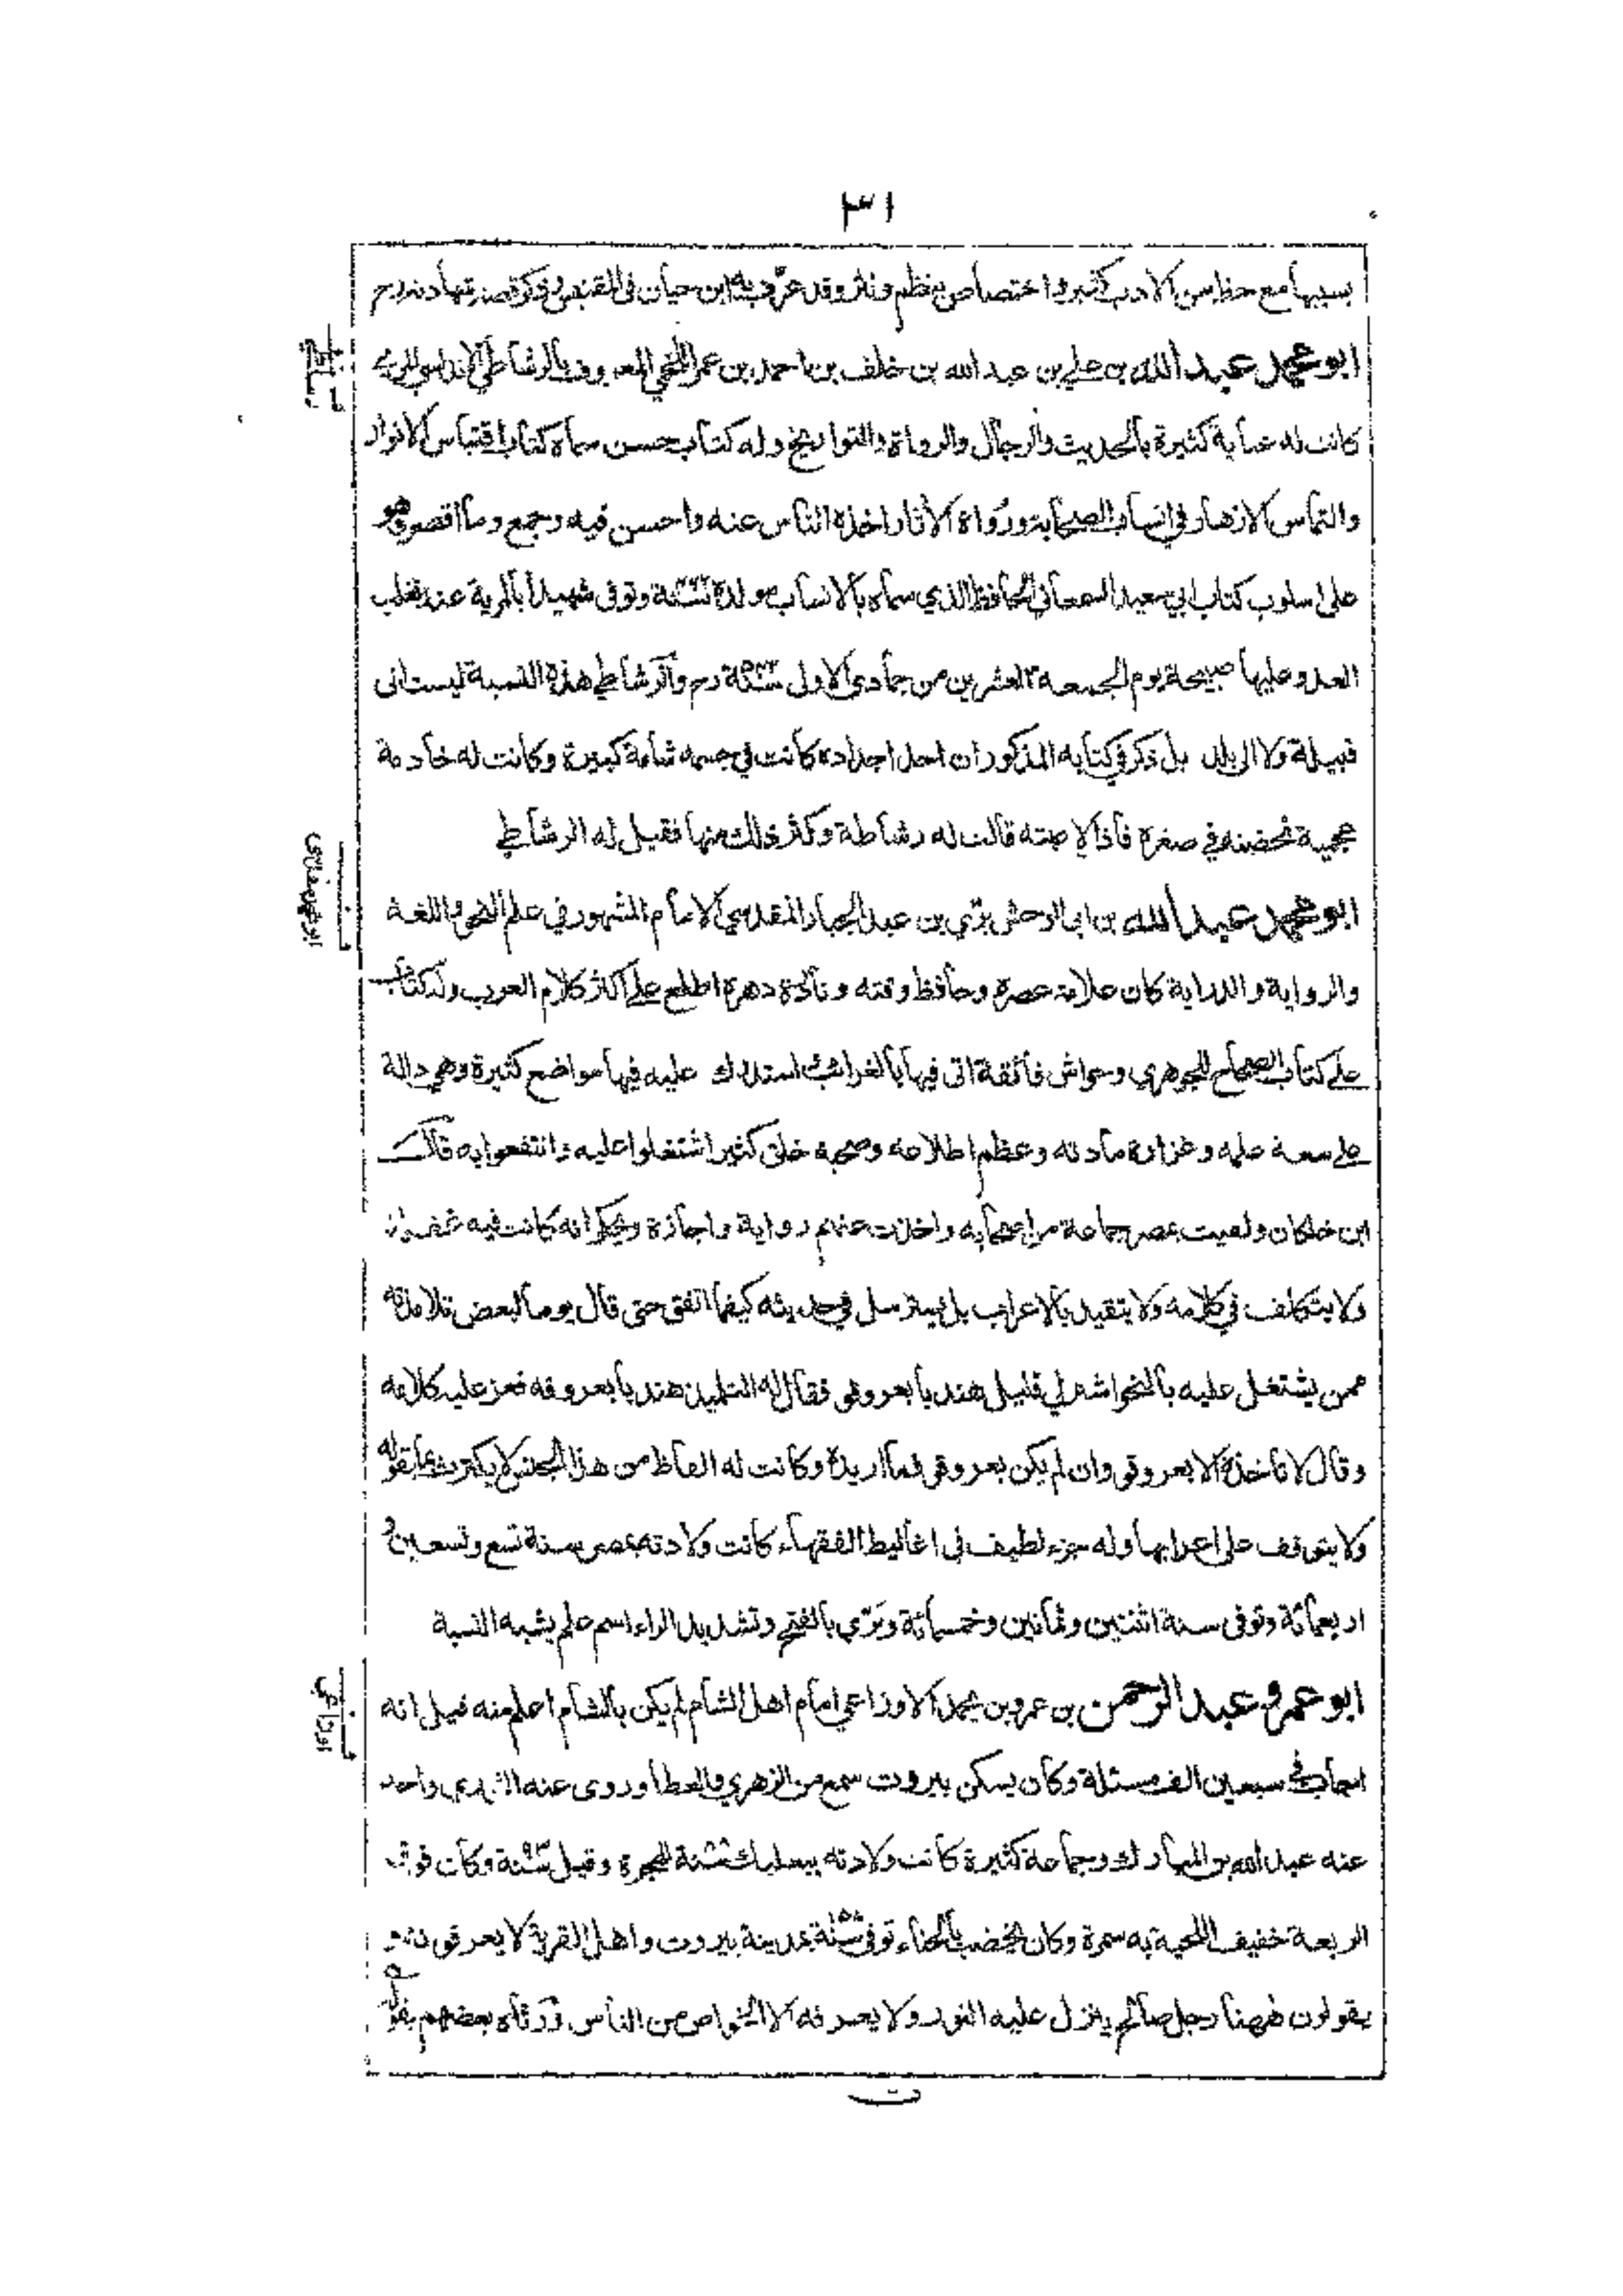 ٣١
بسببها مع حظ من الادب كثير واختصاص بنظم ونثر وقد عرّف به ابن حيان في المقتبس وذكر
ابو محمد عبد الله بن علي بن عبد الله بن خلف بن احمد بن عمر اللخمي المعروف بالرشاطي الاندلسي المريي
كانت له عناية كثيرة بالحديث والرجال والرواة والتواريخ وله كتاب حسن سماه كتاب اقتباس الانوار
والتماس الازهار في انساب الصحابة ورواة الآثار اخذه الناس عنه واحسن فيه وجمع وما اقصر وهو
على اسلوب كتاب ابي سعيد السمعاني الحافظ الذي سماه بالانساب مولده وتوفى شهيدا بالمرية عند تغلب
العدو عليها صبيحة يوم الجمعة العشرين من جمادى الاولى رح والرشاطي هذه النسبة ليست الى
قبيلة ولا الى بلد بل ذكر في كتابه المذكور ان احد اجداده كانت في جسمه شامة كبيرة وكانت له خادمة
عجمية تحضنه في صغره فاذا لاعبته قالت له رشاطة وكثر ذلك منها فقيل له الرشاطي
ابو محمد عبد الله بن ابي الوحش برّي بن عبد الجبار المقدسي الامام المشهور في علم النحو واللغة
والرواية والدراية كان علامة عصره وحافظ وقته ونادرة دهره اطلع على اكثر كلام العرب وله كتاب
على كتاب الصحاح للجوهري وحواش فائقة اتى فيها بالغرائب استدرك عليه فيها مواضع كثيرة وهي دالة
على سعة علمه وغزارة مادته وعظم اطلاعه وصحبه خلق كثير اشتغلوا عليه وانتفعوا به قال
ابن خلكان ولقيت بمصر جماعة من اصحابه واخذت عنهم رواية واجازة ويحكى انه كانت فيه غفلة
ولا يتكلف في كلامه ولا يتقيد بالاعراب بل يسترسل في حديثه كيفما اتفق حتى قال يوما لبعض تلامذته
ممن يشتغل عليه بالنحو اشتر لي قليل هندبا بعروقو فقال له التلميذ هندبا بعروقه فعز عليه كلامه
وقال لا تاخذه الا بعروقو وان لم يكن بعروقو فما اريده وكانت له الفاظ من هذا الجنس لا يكترث بما يقوله
ولا يتوقف على اعرابها وله جزء لطيف في اغاليط الفقهاء كانت ولادته بمصر سنة تسع وتسعين و
اربعمائة وتوفى سنة اثنتين وثمانين وخمسمائة وبَرّي بالفتح وتشديد الراء اسم علم يشبه النسبة
ابو عمرو عبد الرحمن بن عمرو بن يحمد الاوزاعي امام اهل الشام لم يكن بالشام اعلم منه قيل انه
اجاب في سبعين الف مسئلة وكان يسكن بيروت سمع من الزهري والعطا وروى عنه الثوري واخذ
عنه عبد الله بن المبارك وجماعة كثيرة كانت ولادته ببعلبك للهجرة وقيل وكان فوق
الربعة خفيف اللحية به سمرة وكان يخضب بالحناء توفى بمدينة بيروت واهل القرية لا يعرفونه و
يقولون ههنا رجل صالح ينزل عليه النور ولا يعرفه الا الخواص من الناس ورثاه بعضهم بقوله